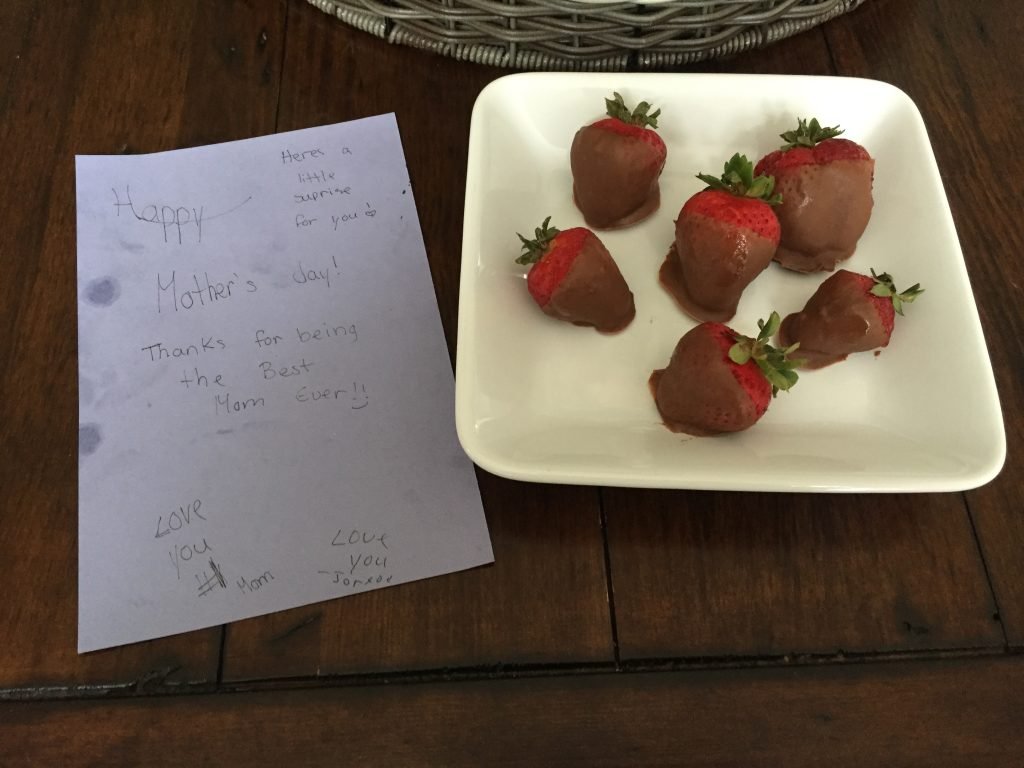 Heres a
little
suprise
for you
Happy
Mother's day!
Thanks for being
the Best
Mom Ever!!
Love
you
#1 Mom
Love
you